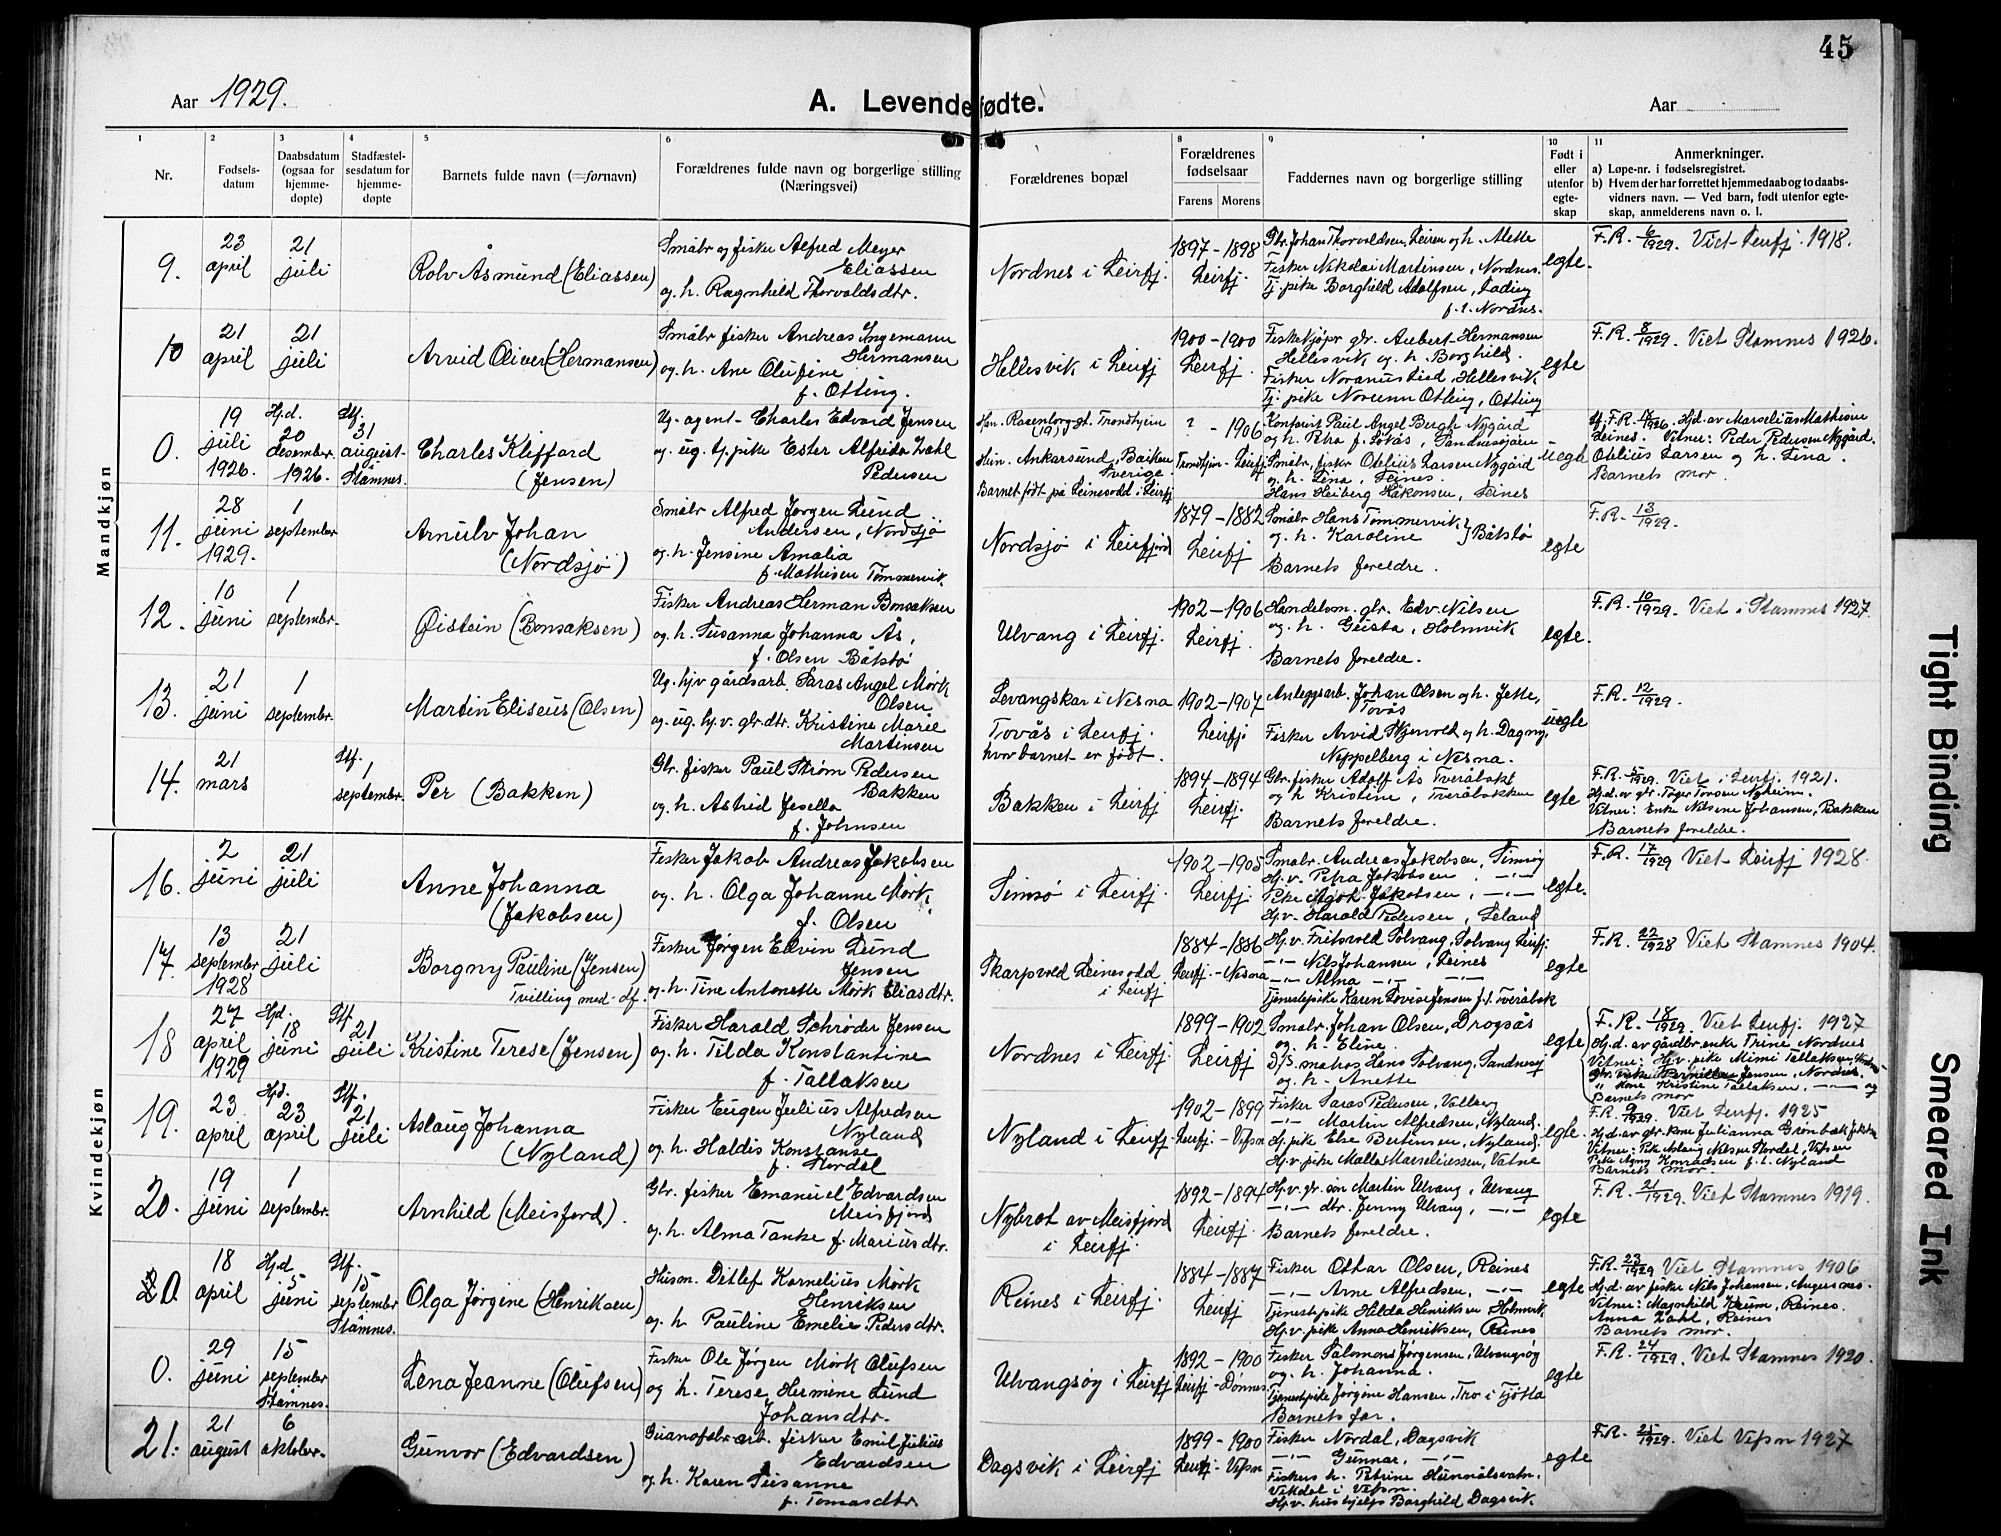 45
Aar 1929.
A. Levendefødte.
Aar
1
2
3
4
5
6
8
9
10
11
Nr.
Fødsels-
datum
Daabsdatum
(ogsaa for
hjemme-
døpte)
Stadfæstel-
sesdatum for
hjemme-
døpte
Barnets fulde navn (=fornavn)
Forældrenes fulde navn og borgerlige stilling
(Næringsvei)
Forældrenes bopæl
Forældrenes
fødselsaar
Farens
Morens
Faddernes navn og borgerlige stilling
Født i
eller
utenfor
egte-
skap
Anmerkninger.
a) Løpe-nr. i fødselsregistret.
b) Hvem der har forrettet hjemmedaab og to daabs-
vidners navn. — Ved barn, født utenfor egte-
skap, anmelderens navn o. l.
Mandkjøn
9.
23
april
21
juli
Rolv Åsmund (Eliassen)
Småbr og fisker Alfred Meyer
Eliassen
og h. Ragnhild Thorvaldsdtr.
Nordnes i Leirfj.
1897 - 1898
Leirfj.
Gbr. Johan Thorvaldsen, Leiren og h. Mette
Fisker Nikolai Martinsen, Nordnes.
Tj. pike Borghild Adolfsen, Leding
f. t. Nordnes.
egte.
F.R. 6/1929. Viet Leirfj. 1918.
10
21
april
21
juli
Arvid Oliver (Hermansen)
Småbr fisker Andreas Yngemann
Hermansen
og h. Ane Olufine
f. Otting.
Hellesvik i Leirfj
1900 - 1900
Leirfj.
Fiskekjøpr gbr. Hermansen
Hellesvik og h. Borghild.
Fisker Hellesvik
Tj. pike Otting, Otting
egte
F.R. 8/1929. Viet Stamnes 1926.
0.
19
juli
1926.
Hjd.
20
desember
1926.
Stf.
31
august
Stamnes.
Charles Klifford
(Jensen)
Ug. agent Charles Edvard Jensen
og ug. tj. pike Ester Alfrida Zahl
Pedersen
Han. Rosenborg gt. Trondhjem
Hun. Ankarsund, Baiken
Sverige.
Barnet født på Leinesodd i Leirfj
? - 1906
Trondhjem - Leirfj
Paul Angel Bergh Nygård
og h. Petra f. Sandnessjøen
Småbr. fisker Otelius Larsen Nygård
og h. Lina, Leines.
Hans Heiberg Håkonsen, Leines
uegte
F.R. 17/1926. Hjd. av Marselius Mathisen
Leines. Vitner: Peder Pedersen Nygård.
Otelius Larsen og h. Lina.
Barnets mor.
11.
28
juni
1929.
1
september
Arnulv Johan
(Nordsjö)
Småbr Alfred Jørgen Lund
Andersen, Nordsjø
og h. Jensine Amalia
f. Mathisen Tømmervik.
Nordsjø i Leirfjord
1879 - 1882
Leirfj
Småbr Hans Tømmervik
og h. Karoline } Båtstø
Barnets foreldre.
egte
F.R. 13/1929.
12.
10
juni
1
septembr.
Øistein (Bonsaksen)
Fisker Andreas Herman Bonsaksen
og h. Susanna Johanna Ås,
f. Olsen Båtstø
Ulvang i Leirfj.
1902 - 1906
Leirfj.
Handelsm. gbr. Edv. Nilsen
og h. Geista, Holmvik
Barnets foreldre.
egte.
F.R. 10/1929. Viet i Stamnes 1927.
13.
21
juni
1
septembr.
Martin Eliseus (Olsen)
Ug. hjv gårdsarb. Saras Angel Mørk
Olsen
og ug. hj.v. gbr.dtr. Kristine Marie
Martinsen
Levangskar i Nesna
Tovås i Leirfj.
hvor barnet er født.
1902 - 1907
Leirfj.
Anleggsarb. Johan Olsen og h. Jette,
Tovås
Fisker Arvid Skjervold og h. Dagny,
Neppelberg i Nesna.
uegte
F.R. 12/1929.
14.
21
mars
Stf.
1
septembr.
Per (Bakken)
Gbr. fisker Paul Strøm Pedersen
Bakken
og h. Astrid Jesella
f. Johnsen
Bakken i Leirfj
1894 - 1894
Leirfj.
Gbr. fisker Adolf Ås Tveråbakk
og h Kristine, Tveråbakken
Barnets foreldre.
egte
F.R. 5/1929. Viet i Leirfj. 1921.
Hj.d. av gbr. Tåger Torsen Nyheim.
Vitner: Enke Nilsine Johansen, Bakken
Barnets foreldre.
Kvindekjøn
16.
2
juni
21
juli
Anne Johanna
(Jakobsen)
Fisker Jakob Andreas Jakobsen
og h. Olga Johanne Mørk.
f. Olsen
Simsø i Leirfj.
1902 - 1905
Leirfj.
Småbr. Andreas Jakobsen, Simsøy
Hj.v. Petra Jakobsen, —"—
Pike Jakobsen, —"—
Hj.v. Harald Pedersen, Leland
egte.
F.R. 17/1929 Viet Leirfj 1928.
17.
13
september
1928
21
juli
Borgny Pauline (Jensen)
Tvilling med df.
Fisker Jørgen Edvin Lund
Jensen
og h. Tine Antonette Mørk Eliasdtr.
Skarpvold Leinesodd
i Leirfj
1884 - 1886
Leirfj. - Nesna
Hj.v. Fritsvold Solvang, Solvang Leirfj.
—"— Nils Johansen, Leines
—"— Alma —"— —"—
Tjenestepike Karen Lovise Jensen f.t. Tveråbak
egte
F.R. 22/1928 Viet Stamnes 1904.
18
27
april
1929
Hjd.
18
juni
Stf
21
juli
Kristine Terese (Jensen)
Fisker Harald Schrøder Jensen
og h. Tilda Konstantine
f. Tallaksen
Nordnes i Leirfj.
1899 - 1902
Leirfj
Småbr. Johan Olsen, Drogsås
og h. Eline.
D/S matros Hans Solvang, Sandnessj
og h. Anette
egte
F.R. 18/1929. Viet Leirfj. 1927
Hj.d. av gårdbr.enke Trine Nordnes
Vitner: Hj.v. pike Mimi Tallaksen,
Jensen, Nordnes
" kone Kristine Tallaksen, —"— og
Barnets mor
19.
23
april
Hjd.
23
april
Stf.
21
juli
Aslaug Johanna
(Nyland)
Fisker Eugen Julius Alfredsen
Nyland
og h. Haldis Konstanse
f. Hordal
Nyland i Leirfj.
1902 - 1899
Leirfj. - Vefsn
Fisker Saras Pedersen, Valberg
—"— Martin Alfredsen, Nyland.
Hj. pike Else Bertinsen, Nyland.
Hj.v. pike Malla Marseliussen, Vatne
egte.
F.R. 9/1929. Viet Leirfj. 1925
Hj.d. av gbr. kone Julianna Grønbæk
Vitner: Pike Aslaug Nilsen Hordal, Vefsen
Pike Agny Konradsen f.t. Nyland
Barnets mor
20.
19
juni
1
septembr.
Arnhild (Meisfjord).
Gbr. fisker Emanuel Edvardsen
Meisfjord
og h. Alma Tanke f. Mariusdtr.
Nybrot av Meisfjord
i Leirfj.
1892 - 1894
Leirfj.
Hj.v. gbr. søn Martin Ulvang, Ulvang
—"— dtr. Jenny Ulvang, —"—
Barnets foreldre.
egte
F.R. 21/1929. Viet Stamnes 1919.
20.
18
april
Hj.d
5
juni
Stf.
15
september
Stamnes.
Olga Jørgine (Henriksen)
Husm. Detlef Kornelius Mørk
Henriksen
og h Pauline Emelie Pedersdtr.
Reines i Leirfj.
1884 - 1887
Leirfj
Fisker Othar Olsen, Reines
—"— Arne Alfredsen, —"—
Tjenestepike Hilda Henriksen Holmvik
Hj.v. pike Anna Henriksen, Reines
egte
F.R. 23/1929 Viet Stamnes 1906
Hj.d av fisker Nils Johansen, Angersnes.
Vitner: Magnhild Krum, Reines.
Anna Zahl, Reines
Barnets mor.
0.
29
juni
15
september
Stamnes.
Lena Jeanne (Olufsen)
Fisker Ole Jørgen Mørk Olufsen
og h. Terese Hermine Lund
Johansdtr.
Ulvangsøy i Leirfj
1892 - 1900
Leirfj - Dønnes
Fisker Salmond Jørgensen, Ulvangsøy
og h. Johanna.
Tjenestepike Jørgine Hansen, Tro i Tjøtta
Barnets far.
egte
F.R. 24/1929. Viet Stamnes 1920.
21.
21
august
6
oktober
Gunvor (Edvardsen)
Guanofabr. arb. fisker Emil Julius
Edvardsen
og h. Karen Susanne
f. Tomasdtr.
Dagsvik i Leirfj
1899 - 1900
Leirfj - Vefsn
Fisker Nordal, Dagsvik
—"— Gunnar, —"—
Fiskers h. Petrine Hunnålsvatn.
Vikdal i Vefsn.
Hj.v. hushjelp Borghild Dagsvik
egte
F.R. 25/1929. Viet Vefsn 1927
Tight Binding
Smeared Ink